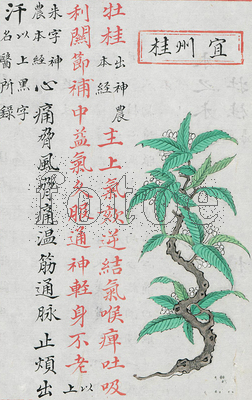 宜州桂
牡桂出神農本經主上氣欬逆結氣喉痺吐吸
利關節補中益氣久服通神輕身不老以上
朱字神農本經心痛脅風脅痛温筋通脈止煩出
汗以上黑字名醫所錄